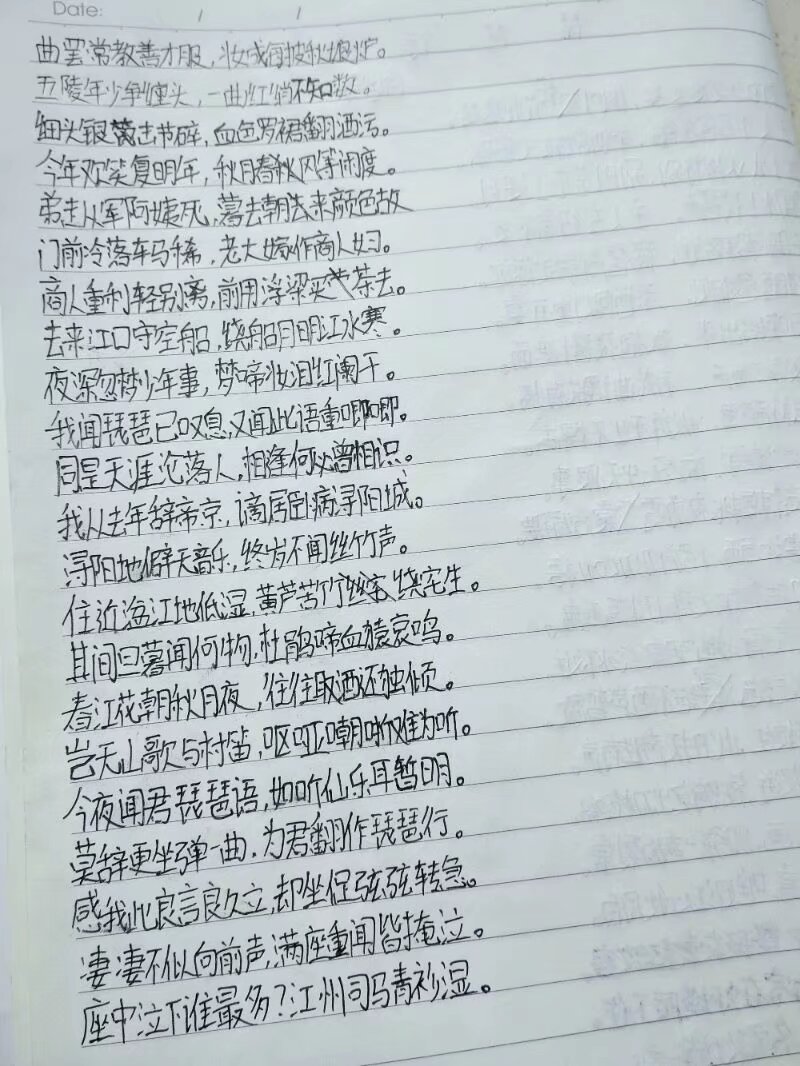 Date: / /
曲罢常教善才服,妆成每被秋娘妒。
五陵年少争缠头,一曲红绡不知数。
钿头银篦击节碎,血色罗裙翻酒污。
今年欢笑复明年,秋月春秋风等闲度。
弟走从军阿姨死,暮去朝去来颜色故
门前冷落车马稀,老大嫁作商人妇。
商人重利轻别离,前月浮梁买茶去。
去来江口守空船,绕船月明江水寒。
夜深忽梦少年事,梦啼妆泪红阑干。
我闻琵琶已叹息,又闻此语重唧唧。
同是天涯沦落人,相逢何必曾相识。
我从去年辞帝京,谪居卧病浔阳城。
浔阳地僻无音乐,终岁不闻丝竹声。
住近湓江地低湿,黄芦苦竹绕宅生。
其间旦暮闻何物,杜鹃啼血猿哀鸣。
春江花朝秋月夜,往往取酒还独倾。
岂无山歌与村笛,呕哑嘲哳难为听。
今夜闻君琵琶语,如听仙乐耳暂明。
莫辞更坐弹一曲,为君翻作琵琶行。
感我此良言良久立,却坐促弦弦转急。
凄凄不似向前声,满座重闻皆掩泣。
座中泣下谁最多?江州司马青衫湿。